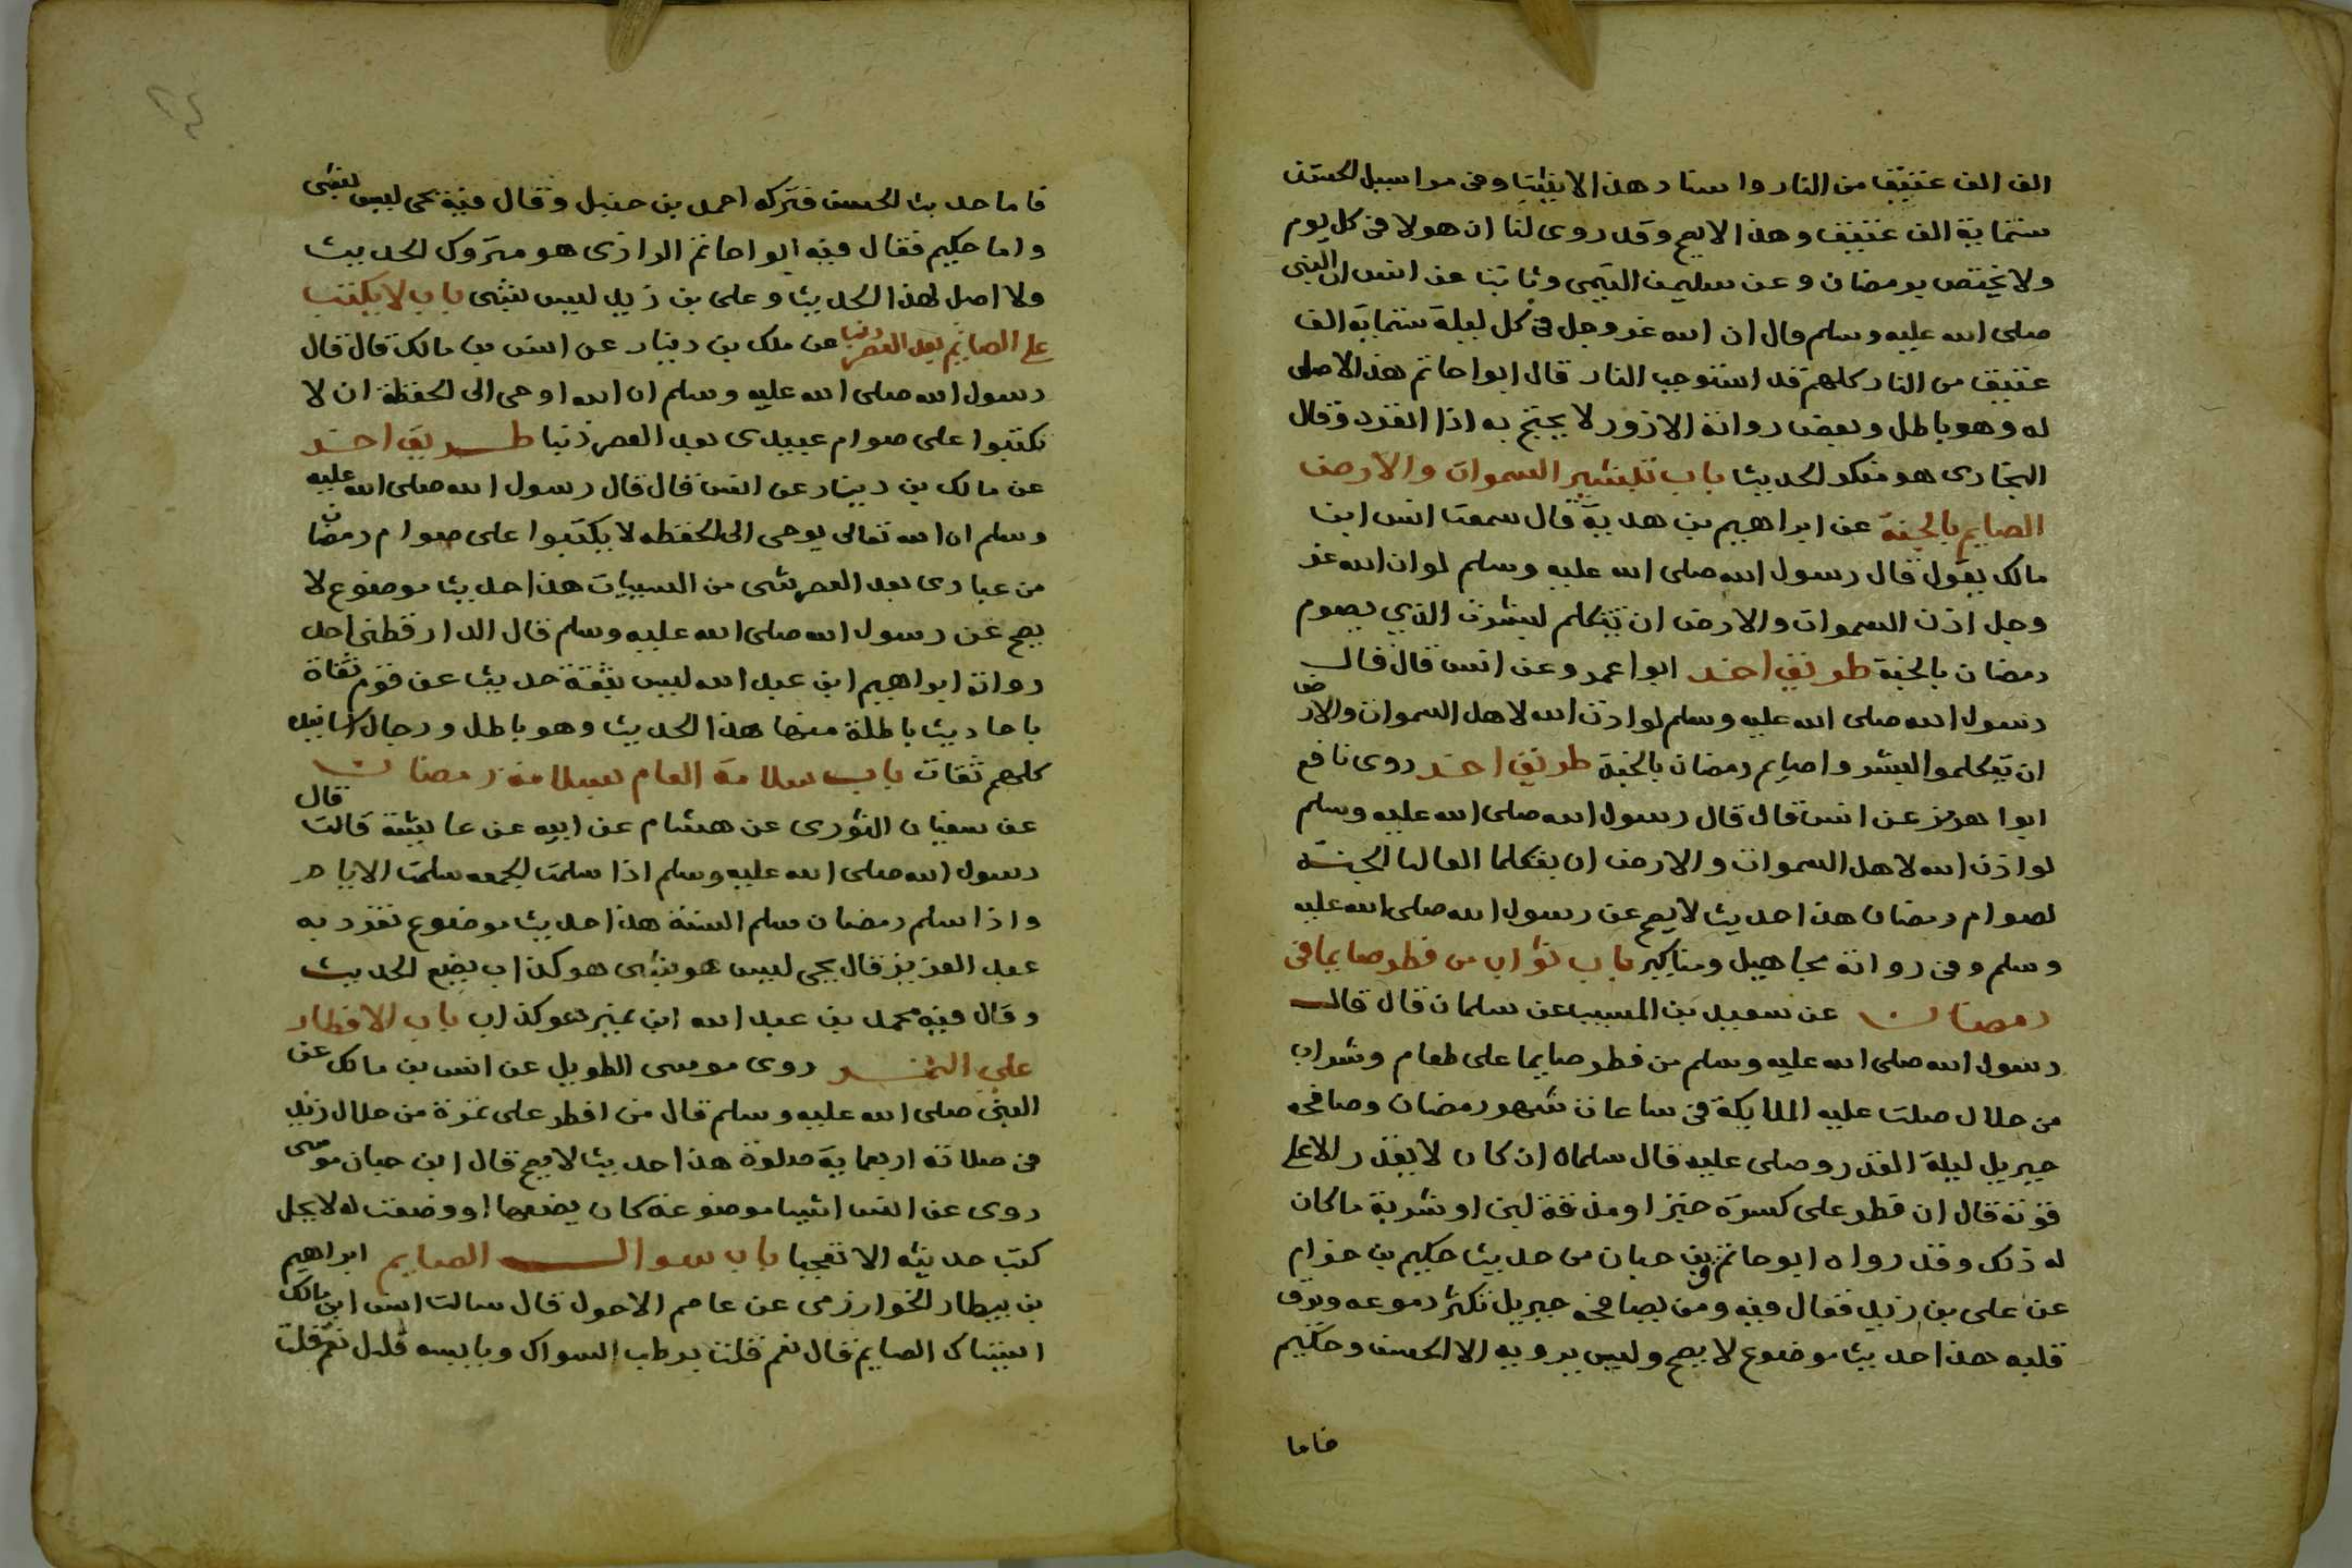 الف الف عتيق من النار واسناد هذا لا يثبت وفى مراسيل الحسن
ستماية الف عتيق وهذا لا يصح وقد روى لنا ان هولا فى كل يوم
ولا يختص برمضان وعن سليمن التيمى وثابتا عن انس ان النبى
صلى الله عليه وسلم قال ان الله عز وجل فى كل ليلة ستماية الف
عتيق من النار كلهم قد استوجب النار قال ابوا حاتم هذا لا اصل
له وهو باطل وبعض رواته الازور لا يحتج به اذا انفرد وقال
البخارى هو منكر الحديث باب تبشير السموات والارض
الصايم بالجنة عن ابراهيم بن هدية قال سمعت انس ابن
مالك يقول قال رسول الله صلى الله عليه وسلم لو ان الله عز
وجل اذن السموات والارض ان تتكلم لبشرت الذي يصوم
رمضان بالجنة طريق اخر ابوا عمر وعن انس قال قال
رسول الله صلى الله عليه وسلم لو اذن الله لاهل السموات والارض
ان يتكلموا البشروا صايم رمضان بالجنة طريق اخر روى نافع
ابوا هرمز عن انس قال قال رسول الله صلى الله عليه وسلم
لو اذن الله لاهل السموات والارض ان يتكلما لقالبا الجنة
لصوام رمضان هذا حديث لا يصح عن رسول الله صلى الله عليه
وسلم وفى رواته مجاهيل ومناكير باب ثواب من فطر صايما فى
رمضان عن سعيد بن المسيب عن سلمان قال قال
رسول الله صلى الله عليه وسلم من فطر صايما على طعام وشراب
من حلال صلت عليه الملايكة فى ساعات شهر رمضان وصافحه
جبريل ليلة القدر وصلى عليه قال سلمان ان كان لا يقدر الا على
قوته قال ان فطر على كسرة خبز او مذقة لبن او شربة ما كان
له ذلك وقد رواه ابو حاتم بن حبان من حديث حكيم بن حزام
عن على بن زيد فقال فيه ومن يصافحه جبريل تكثر دموعه ويرق
قلبه هذا حديث موضوع لا يصح وليس يرويه الا الحسن وحكيم
فاما
فاما حديث الحسن فتركه احمد بن حنبل وقال فيه يحى ليس بشى
واما حكيم فقال فيه ابوا حاتم الرازى هو متروك الحديث
ولا اصل لهذا الحديث وعلى بن زيد ليس بشى باب لا يكتب
على الصايم بعد العصر ذنبا عن ملك بن دينار عن انس بن مالك قال قال
رسول الله صلى الله عليه وسلم ان الله اوحى الى الحفظة ان لا
تكتبوا على صوام عبيدى بعد العصر ذنبا طريق اخر
عن مالك بن دينار عن انس قال قال رسول الله صلى الله عليه
وسلم ان الله تعالى يوحى الى الحفظه لا يكتبوا على صوام رمضان
من عبادى بعد العصر شى من السيات هذا حديث موضوع لا
يصح عن رسول الله صلى الله عليه وسلم قال الدارقطنى احد
رواته ابراهيم ابن عبد الله ليس بثقة حديث عن قوم ثقاة
باحاديث باطلة منها هذا الحديث وهو باطل ورجال اسانيد
كلهم ثقات باب سلامة العام بسلامة رمضان
عن سفيان الثورى عن هشام عن ابيه عن عايشة قالت قال
رسول الله صلى الله عليه وسلم اذا سلمت الجمعه سلمت الايام
واذا سلم رمضان سلم السنة هذا حديث موضوع تفرد به
عبد العزيز قال يحى ليس هو بشى هو كذاب يضع الحديث
وقال فيه محمد بن عبد الله ابن نمير هو كذاب باب الافطار
على التمر روى موسى الطويل عن انس بن مالك عن
النبى صلى الله عليه وسلم قال من افطر على تمرة من حلال زيد
فى صلاته اربعماية صلوة هذا حديث لا يصح قال ابن حبان موسى
روى عن انس اشيا موضوعة كان يضعها او وضعت له لا يحل
كتب حديثه الا تعجبا باب سواك الصايم ابراهيم
بن بيطار الخوارزمى عن عاصم الاحول قال سالت انس ابن مالك
ايستاك الصايم قال نعم قلت برطب السواك ويابسه قال نعم قلت